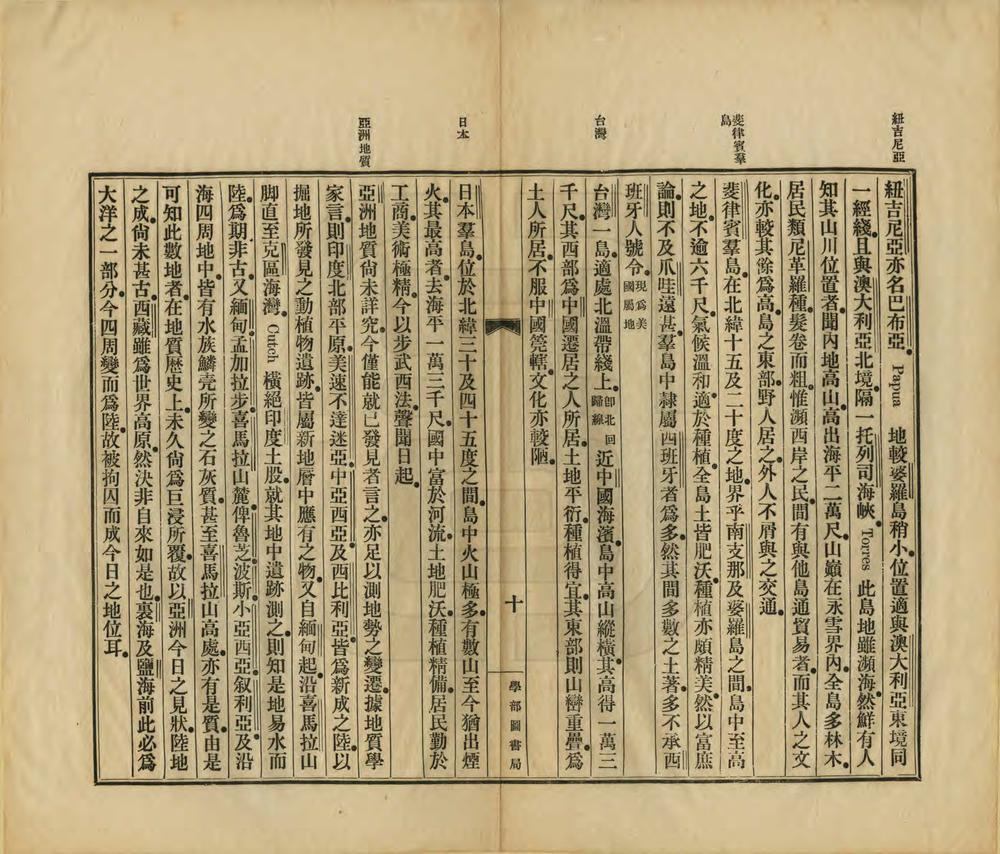 紐吉尼亞
斐律賓羣島
台灣
日本
亞洲地質
紐吉尼亞亦名巴布亞。Papua 地較婆羅島稍小。位置適與澳大利亞東境同
一經綫。且與澳大利亞北境隔一托列司海峽。Torres 此島地雖瀕海。然鮮有人
知其山川位置者。聞內地高山。高出海平二萬尺。山巔在永雪界內。全島多林木。
居民類尼革羅種。髮卷而粗。惟瀕西岸之民。間有與他島通貿易者。而其人之文
化。亦較其餘爲高。島之東部。野人居之。外人不屑與之交通。
斐律賓羣島。在北緯十五及二十度之地。界乎南支那及婆羅島之間。島中至高
之地。不逾六千尺。氣候溫和。適於種植。全島土皆肥沃。種植亦頗精美。然以富庶
論。則不及爪哇遠甚。羣島中隸屬西班牙者爲多。然其間多數之土著。多不承西
班牙人號令。現爲美國屬地
台灣一島。適處北溫帶綫上。卽北回歸線 近中國海濱。島中高山縱橫。其高得一萬三
千尺。其西部爲中國遷居之人所居。土地平衍。種植得宜。其東部則山巒重疊。爲
土人所居。不服中國筦轄。文化亦較陋。
十
學部圖書局
日本羣島。位於北緯三十及四十五度之間。島中火山極多。有數山至今猶出煙
火。其最高者。去海平一萬三千尺。國中富於河流。土地肥沃。種植精備。居民勤於
工商。美術極精。今以步武西法。聲聞日起。
亞洲地質尙未詳究。今僅能就已發見者言之。亦足以測地勢之變遷。據地質學
家言。則印度北部平原。美速不達迷亞。中亞西亞。及西比利亞。皆爲新成之陸。以
掘地所發見之動植物遺跡。皆屬新地層中應有之物。又自緬甸起。沿喜馬拉山
脚直至克區海灣。Cutch 橫絕印度土股。就其地中遺跡測之。則知是地易水而
陸。爲期非古。又緬甸。孟加拉步。喜馬拉山麓。俾魯芝。波斯。小亞西亞。叙利亞。及沿
海四周地中。皆有水族鱗壳所變之石灰質。甚至喜馬拉山高處。亦有是質。由是
可知此數地者。在地質歷史上。未久尙爲巨浸所覆。故以亞洲今日之見狀。陸地
之成。尙未甚古。西藏雖爲世界高原。然決非自來如是也。裏海及鹽海。前此必爲
大洋之一部分。今四周變而爲陸。故被拘囚而成今日之地位耳。